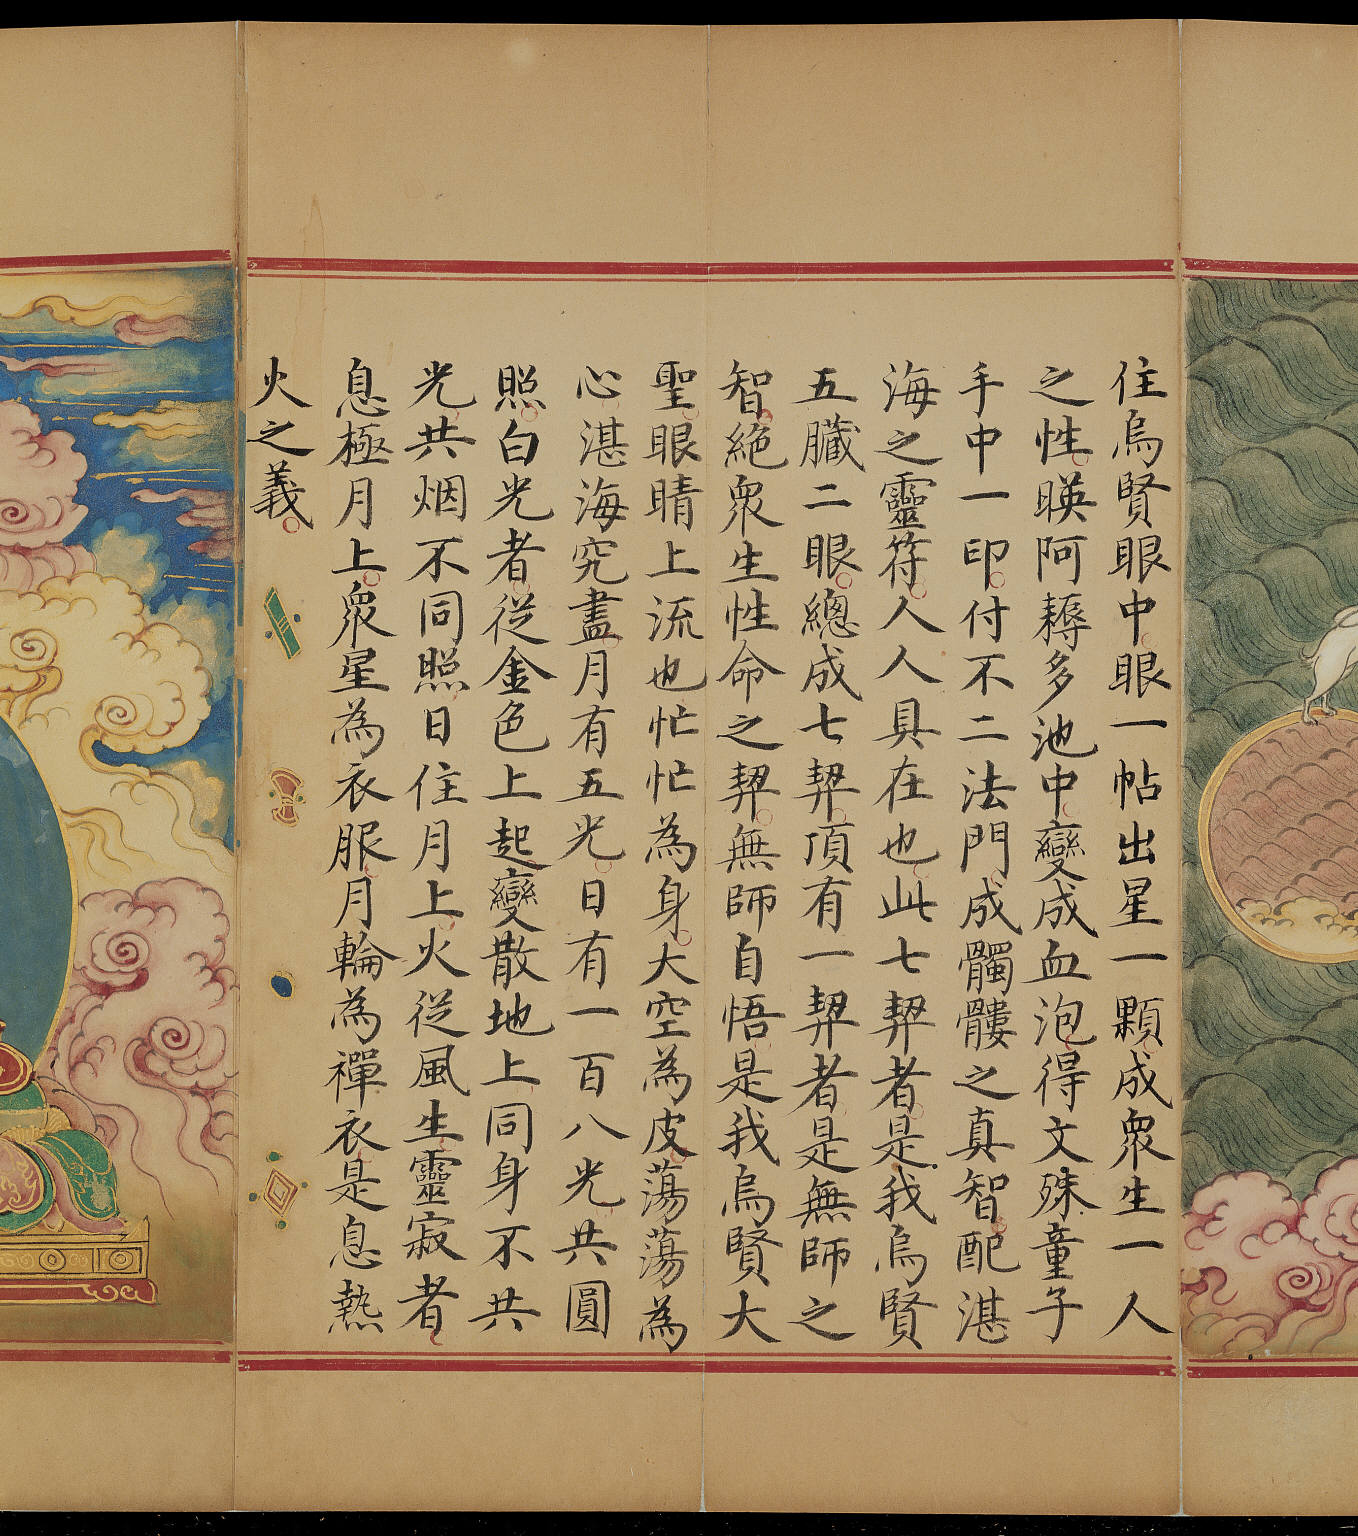 住烏賢眼中眼一帖出星一顆成衆生一人
之性暎阿耨多池中變成血泡得文殊童子
手中一印付不二法門成髑髏之真智配湛
海之靈符人人具在也此七契者是我烏賢
五臟二眼總成七契頂有一契者是無師之
智絕衆生性命之契無師自悟是我烏賢大
聖眼睛上流也忙忙為身大空為皮蕩蕩為
心湛海究盡月有五光日有一百八光共圓
照白光者從金色上起變散地上同身不共
光共烟不同照日住月上火從風生靈寂者
息極月上衆星為衣服月輪為禪衣是息熱
火之義